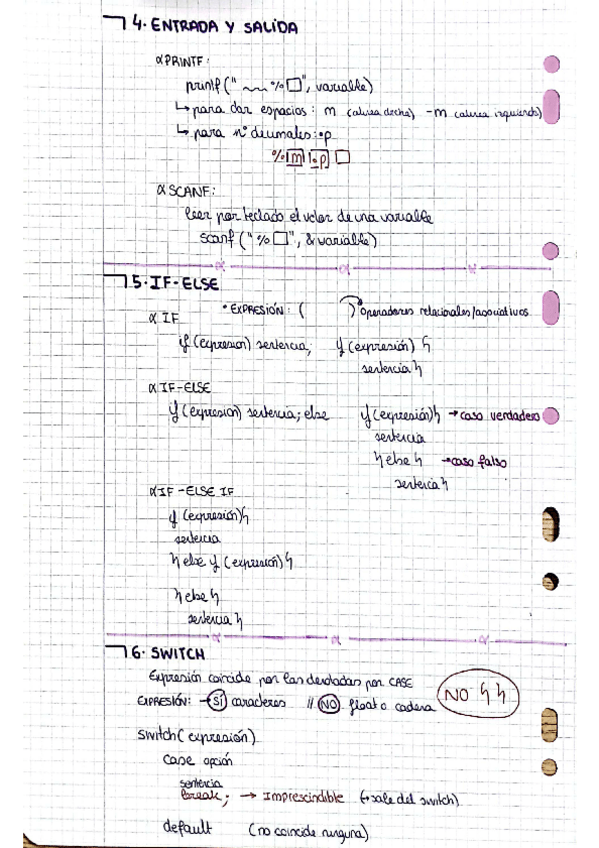 4. ENTRADA Y SALIDA
α PRINTF:
printf(" ~~ %□", variable)
↳ para dar espacios: m (alinea dcha), -m (alinea izquierda)
↳ para nº decimales: .p
% m .p □
α SCANF:
leer por teclado el valor de una variable
scanf("%□", &variable)
5. IF-ELSE
• EXPRESIÓN: ( ) operadores relacionales/asociativos
α IF
if (expresion) sentencia; if (expresión) {
sentencia }
α IF-ELSE
if (expresion) sentencia; else if (expresión) { → caso verdadero
sentencia
} else { → caso falso
sentencia }
α IF - ELSE IF
if (expresión) {
sentencia
} else if (expresión) {
} else {
sentencia }
6. SWITCH
Expresión coincide por las denotadas por CASE
EXPRESIÓN: → SÍ caracteres // NO float o cadena
NO { }
switch (expresión)
case opción
sentencia
break; → Imprescindible (→ sale del switch)
default (no coincide ninguna)